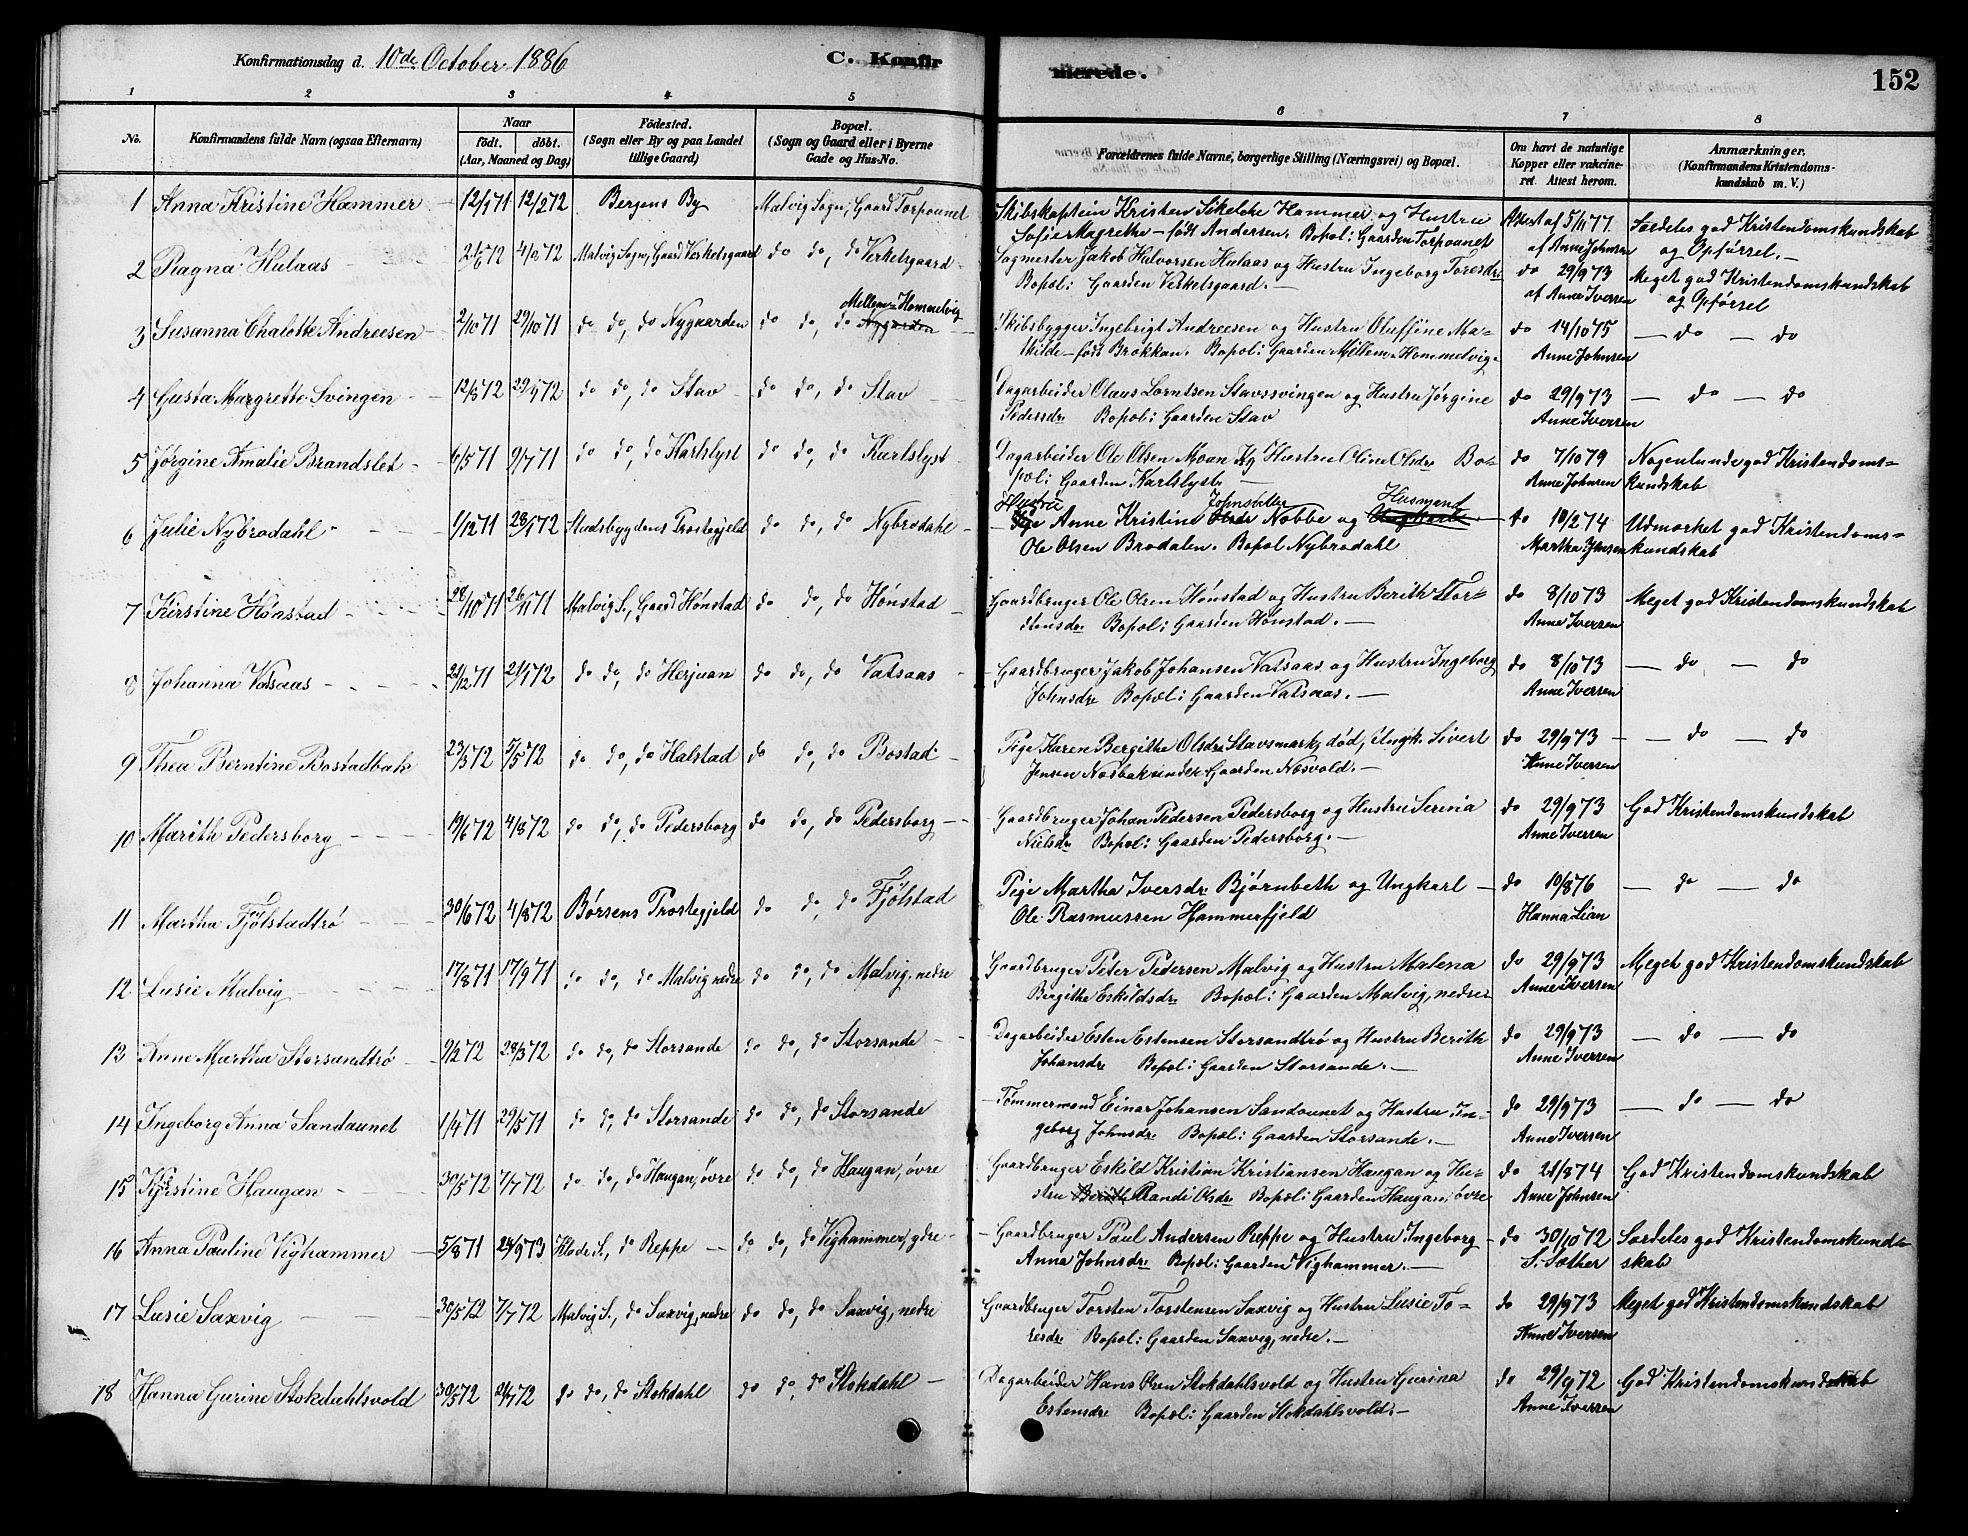 Konfirmationsdag d. 10de October 1886
C. Konfir
merede.
152
1 2 3 4 5 6 7 8
No.
Konfirmandens fulde Navn (ogsaa Efternavn)
Naar
födt. döbt.
(Aar, Maaned og Dag)
Födested.
(Sogn eller By og paa Landet
tillige Gaard)
Bopæl.
(Sogn og Gaard eller i Byerne
Gade og Hus-No.
Forældrenes fulde Navne, borgerlige Stilling (Næringsvei) og Bopæl.
Om havt de naturlige
Kopper eller vakcine-
ret. Attest herom.
Anmærkninger.
(Konfirmandens Kristendoms-
kundskab m. V.)
1 Anna Kristine Hammer 12/1 71 12/2 72 Bergens By Malvig Sogn, Gaard Torpaunet
Skibskaptein Kristen Hammer og Hustru
Sofie Magrethe – født Andersen. Bopæl: Gaarden Torpaunet
Attest af 5/11 77. af Anne Johnsen
Særdeles god Kristendomskundskab
og Opførsel. –
2 Ragna Hulaas 2/6 72 4/8 72 Malvig Sogn, Gaard Verkelsgaard do do, do Verkelsgaard
Sagmester Jakob Halvorsen Hulaas og Hustru Ingeborg Toresdr:
Bopæl: Gaarden Verkelsgaard. –
do 29/9 73 af Anne Iversen
Meget god Kristendomskundskab
og Opførsel
3 Susanna Chalotte Andreesen 2/10 71 29/10 71 do do, do Nygaarden do do, do Nygaarden Mellem-Hommelvig
Skibsbygger Ingebrigt Andreesen og Hustru Oluffine Ma-
thilde – født Brokkan. Bopæl: Gaarden Mellem-Hommelvig.
do 14/10 75 Anne Johnsen
– do – do
4 Gusta Margrethe Svingen 12/8 72 29/9 72 do do, do Stav do do, do Stav
Dagarbeider Olaus Lorntsen Stavssvingen og Hustru Jørgine
Pedersdr: Bopæl: Gaarden Stav
do 29/9 73 Anne Iversen
– do – do
5 Jørgine Amalie Brandslet 6/5 71 9/7 71 do do, do Karlslyst do do, do Karlslyst
Dagarbeider Ole Olsen Moan og Hustru Oline Olsdr: Bo-
pæl: Gaarden Karlslyst
do 7/10 79 Anne Johnsen
Nogenlunde god Kristendoms-
kundskab
6 Julie Nybrodahl 1/12 71 28/1 72 Stadsbygdens Præstegjeld do do, do Nybrodahl
Hustru Johnsdatter Husmand
Pige Anne Kristine Olsdr Nøbbe og Ungkarl
Ole Olsen Brodalen. Bopæl Nybrodahl
do 10/2 74 Martha Jensen
Udmærket god Kristendoms-
kundskab
7 Kirstine Hønstad 28/10 71 26/11 71 Malvig S., Gaard Hønstad do do, do Hønstad
Gaardbruger Ole Olsen Hønstad og Hustru Berith Tor-
stensdr: Bopæl: Gaarden Hønstad. –
do 8/10 73 Anne Iversen
Meget god Kristendomskundskab
8 Johanna Vatsaas 21/12 71 21/1 72 do do, do Herjuan do do, do Vatsaas
Gaardbruger Jakob Johansen Vatsaas og Hustru Ingeborg
Johnsdr: Bopæl: Gaarden Vatsaas. –
do 8/10 73 Anne Iversen
– do – do
9 Thea Berntine Bostadbak 23/3 72 5/5 72 do do, do Halstad do do, do Bostad
Pige Karen Bergithe Olsdr: Stavsmark, død, Ungk. Sivert
Jensen Næsbak under Gaarden Næsvold. –
do 29/9 73 Anne Iversen
– do – do
10 Marith Pedersborg 19/6 72 4/8 72 do do, do Pedersborg do do, do Pedersborg
Gaardbruger Johan Pedersen Pedersborg og Hustru Serina
Nielsdr: Bopæl: Gaarden Pedersborg. –
do 29/9 73 Anne Iversen
God Kristendomskundskab
11 Martha Fjölstadtrö 30/6 72 4/8 72 Børsens Præstegjeld do do, do Fjölstad
Pige Martha Iversdr: Bjørnbeth og Ungkarl
Ole Rasmussen Hammerfjeld
do 10/8 76 Hanna Lian
– do – do
12 Lusie Malvig 17/8 71 17/9 71 do do, do Malvig, nedre do do, do Malvig, nedre
Gaardbruger Peter Pedersen Malvig og Hustru Malena
Bergithe Eskildsdr: Bopæl: Gaarden Malvig, nedre
do 29/9 73 Anne Iversen
Meget god Kristendomskundskab
13 Anne Martha Storsandtrø 9/2 72 29/3 72 do do, do Storsande do do, do Storsande
Dagarbeider Esten Estensen Storsandtrø og Hustru Berith
Johansdr: Bopæl: Gaarden Storsande. –
do 29/9 73 Anne Iversen
– do – do
14 Ingeborg Anna Sandaunet 1/4 71 29/5 71 do do, do Storsande do do, do Storsande
Tømmermand Einar Johansen Sandaunet og Hustru In-
geborg Johnsdr: Bopæl: Gaarden Storsande. –
do 29/9 73 Anne Iversen
– do – do
15 Kjerstine Haugan 30/5 72 7/7 72 do do, do Haugan, øvre do do, do Haugan, øvre
Gaardbruger Eskild Kristian Kristiansen Haugan og Hu-
stru Berith Randi Olsdr: Bopæl: Gaarden Haugan, øvre
do 21/8 74 Anne Johnsen
God Kristendomskundskab
16 Anna Pauline Vighammer 5/8 71 24/9 73 Klæde S., do Reppe do do, do Vighammer, ydre
Gaardbruger Paul Andersen Reppe og Hustru Ingeborg
Anna Johnsdr: Bopæl: Gaarden Vighammer. –
do 30/10 72 S. Sæther
Særdeles god Kristendomskund-
skab
17 Lusie Saxvig 30/5 72 7/7 72 Malvig S., do Saxvig, nedre do do, do Saxvig, nedre
Gaardbruger Torsten Torstensen Saxvig og Hustru Lusie To-
resdr: Bopæl: Gaarden Saxvig, nedre. –
do 29/9 73 Anne Iversen
Meget god Kristendomskundskab
18 Hanna Gurine Stokdahlsvold 30/5 72 21/7 72 do do, do Stokdahl do do, do Stokdahl
Dagarbeider Hans Olsen Stokdahlsvold og Hustru Gurina
Estensdr: Bopæl: Gaarden Stokdahlsvold. –
do 29/9 72 Anne Iversen
God Kristendomskundskab